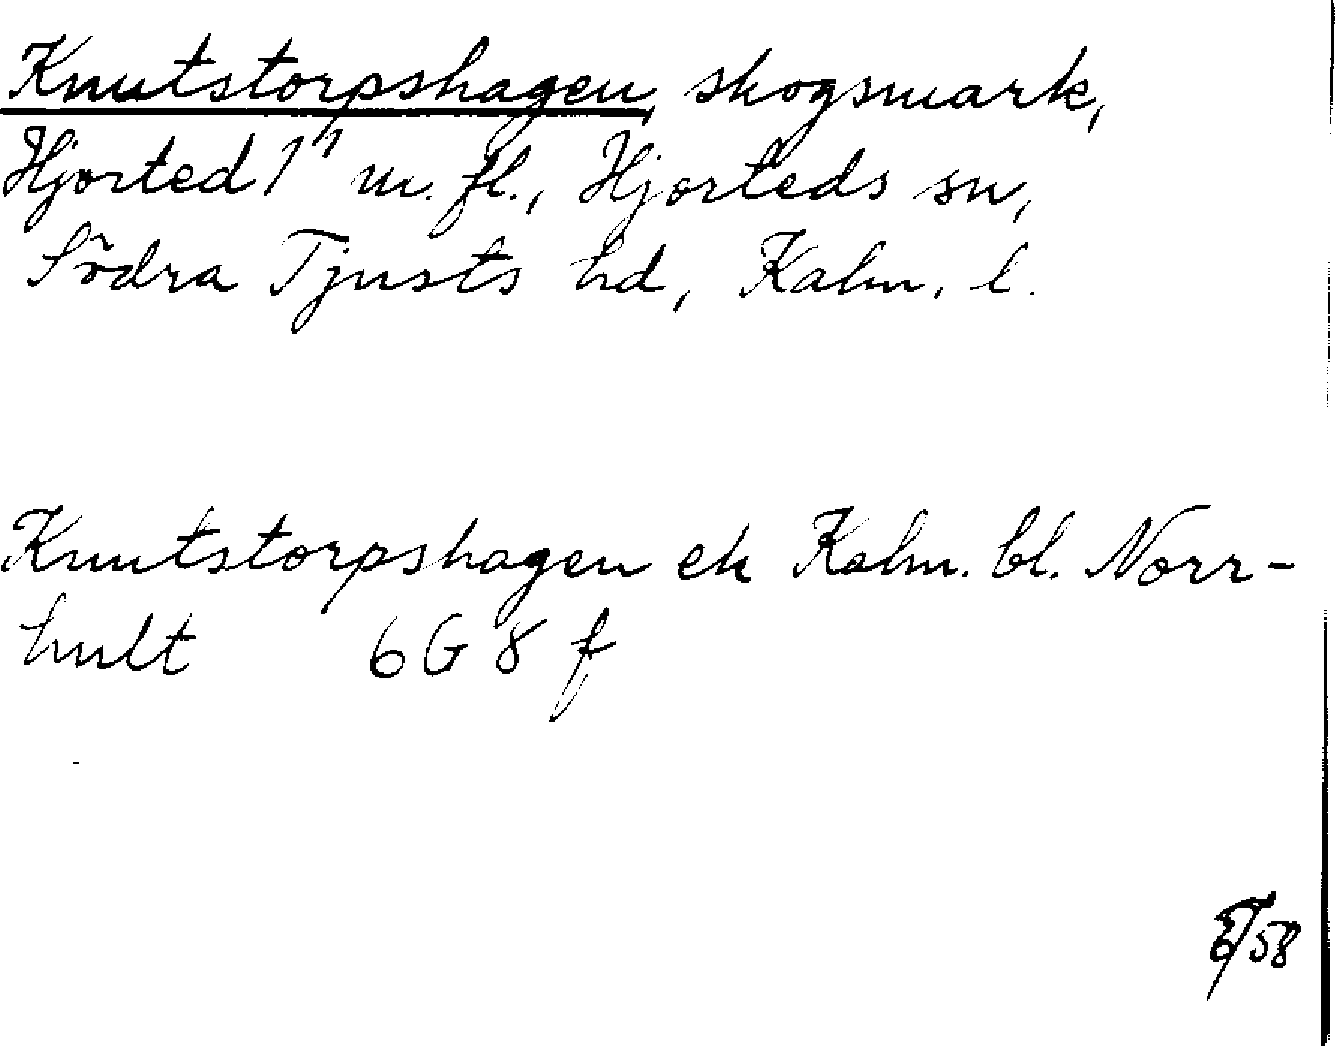 Knutstorpshagen, skogsmark,
Hjorted 1¹¹ m. fl., Hjorteds sn,
Södra Tjusts hd, Kalm. l.
Knutstorpshagen ek Kalm. bl. Norr-
hult 6 G 8 f
58